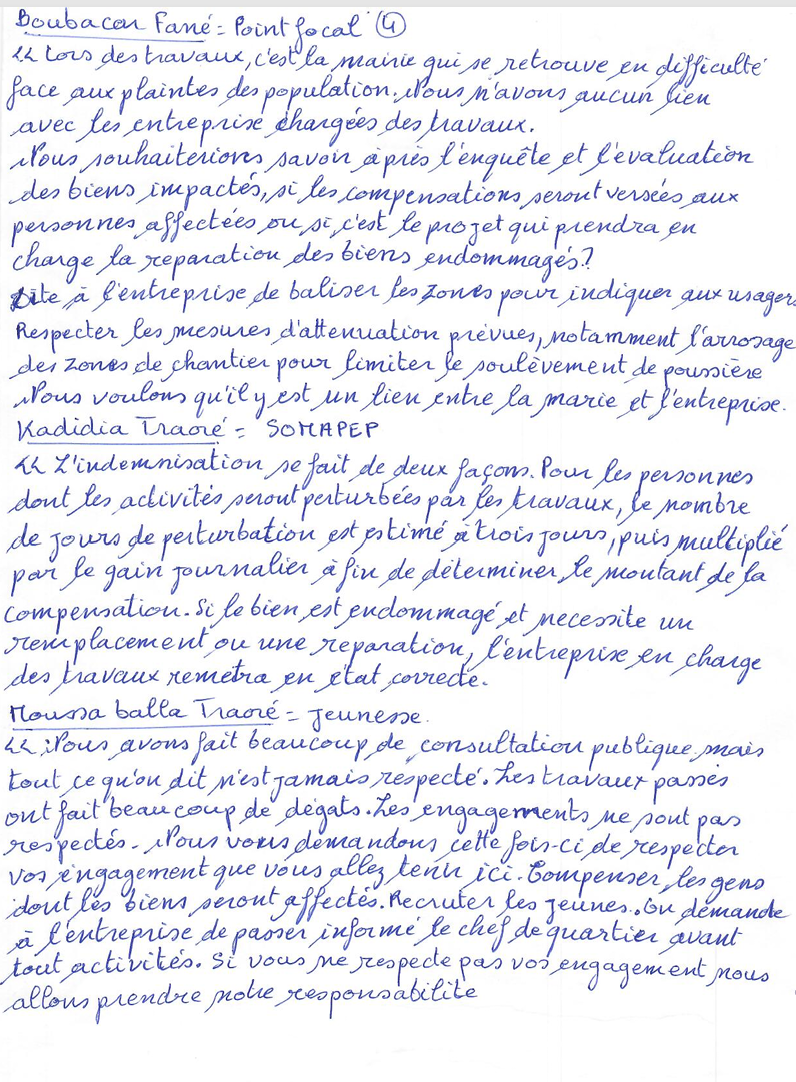 Boubacar Fané = Point focal (4)
<< Lors des travaux, c'est la mairie qui se retrouve en difficulté
face aux plaintes des population. Nous n'avons aucun lien
avec les entreprise chargées des travaux.
Nous souhaiterions savoir après l'enquête et l'évaluation
des biens impactés, si les compensations seront versées aux
personnes affectées ou si c'est le projet qui prendra en
charge la reparation des biens endommagés?
Dite à l'entreprise de baliser les zones pour indiquer aux usagers
Respecter les mesures d'attenuation prévues, notamment l'arrosage
des zones de chantier pour limiter le soulèvement de poussière
Nous voulons qu'il y est un lien entre la marie et l'entreprise.
Kadidia Traoré = SOMAPEP
<< L'indemnisation se fait de deux façons. Pour les personnes
dont les activités seront perturbées par les travaux, le nombre
de jours de perturbation est estimé à trois jours, puis multiplié
par le gain journalier à fin de déterminer le montant de la
compensation. Si le bien est endommagé et necessite un
remplacement ou une reparation, l'entreprise en charge
des travaux remetra en état correcte.
Moussa balla Traoré = jeunesse.
<< Nous avons fait beaucoup de consultation publique mais
tout ce qu'on dit n'est jamais respecté. Les travaux passés
ont fait beaucoup de dégats. Les engagements ne sont pas
respectés. Nous vous demandons cette fois-ci de respecter
vos engagement que vous allez tenir ici. Compenser les gens
dont les biens seront affectés. Recruter les jeunes. On demande
à l'entreprise de passer informé le chef de quartier avant
tout activités. Si vous ne respecte pas vos engagement nous
allons prendre notre responsabilite